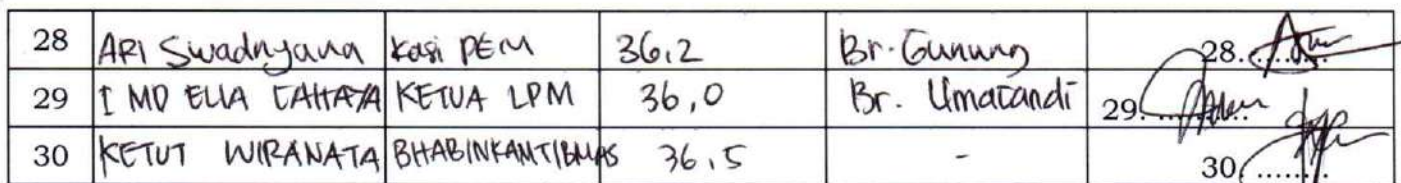 28 ARI Swadnyana Kasi PEM 36,2 Br. Gunung 28. ........
29 I MD ELIA CAHAYA KETUA LPM 36,0 Br. Umacandi 29. ........
30 KETUT WIRANATA BHABINKAMTIBMAS 36,5 - 30 ........